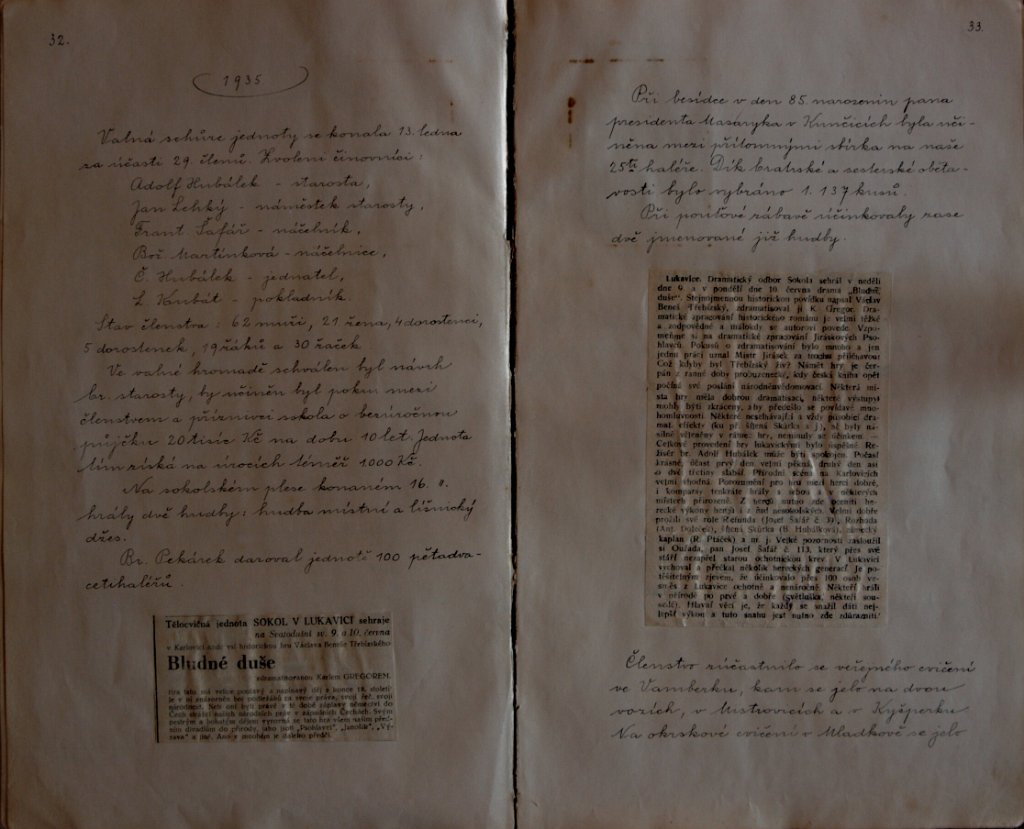 32.
1935
Valná schůze jednoty se konala 13. ledna
za účasti 29. členů. Zvoleni činovníci :
Adolf Hubálek - starosta,
Jan Lehký - náměstek starosty,
Frant. Šafář - náčelník,
Bož. Martinková - náčelnice,
Č. Hubálek - jednatel,
L. Kubát - pokladník.
Stav členstva : 62 muži, 21 žena, 4 dorostenci,
5 dorostenek, 19 žáků a 30 žaček.
Ve valné hromadě schválen byl návrh
br. starosty, by učiněn byl pokus mezi
členstvem a příznivci sokola o bezúročnou
půjčku 20 tisíc Kč na dobu 10 let. Jednota
tím získá na úrocích téměř 1000 Kč.
Na sokolském plese konaném 16. II.
hrály dvě hudby : hudba místní a líšnický
džes.
Br. Pekárek daroval jednotě 100 pětadva-
cetihaléřů.
Tělocvičná jednota SOKOL V LUKAVICI sehraje
na Svatodušní sv. 9. a 10. června
v Karlovici hru Václava Beneše Třebízského
Bludné duše
zdramatisovanou Karlem GREGOREM.
33.
Při besídce v den 85. narozenin pana
presidenta Masaryka v Kunčicích byla uči-
něna mezi přítomnými sbírka na naše
25ti haléře. Dík bratrské a sesterské oběta-
vosti bylo vybráno 1.137 kusů.
Při pouťové zábavě účinkovaly zase
dvě jmenované již hudby.
Lukavice. Dramatický odbor Sokola sehrál v neděli
dne 9. a v pondělí dne 10. června drama „Bludné
duše". Stejnojmennou historickou povídku napsal Václav
Beneš Třebízský, zdramatisoval ji K. Gregor. Dra-
matické zpracování historického románu je velmi těžké
a zodpovědné a málokdy se autorovi povede. Vzpo-
meňme si na dramatické zpracování Jiráskových Pso-
hlavců. Pokusů o zdramatisování bylo mnoho a jen
jedinu práci uznal Mistr Jirásek za trochu přiléhavou.
Což kdyby byl Třebízský živ? Námět hry je čer-
pán z ranné doby probuzenecké, kdy česká kniha opět
počíná své poslání národněuvědomovací. Některá mí-
sta hry měla dobrou dramatisaci, některé výstupy
mohly býti zkráceny, aby předešlo se povídavé mno-
homluvnosti.
Celkové provedení hry lukavickými bylo úspěšné. Re-
žisér br. Adolf Hubálek může býti spokojen. Počasí
krásné, účast prvý den velmi pěkná, druhý den asi
o dvě třetiny slabší. Přírodní scéna na Karlovicích
velmi vhodná. Porozumění pro hru mezi herci dobré,
prožili své role Refunda (Josef Šafář č. 3), Rozhoda
kaplan (R. Ptáček) a m. j. Veliké pozornosti zasloužil
si Ouřada, pan Josef Šafář č. 113, který přes své
stáří nezapřel starou ochotnickou krev. V Lukavici
vychoval a přečkal několik hereckých generací. Je po-
těšitelným zjevem, že účinkovalo přes 100 osob ve-
směs z Lukavice ochotně a nenáročně. Někteří hráli
v přírodě po prvé a dobře (světluška, někteří sou-
sedé). Hlavní věcí je, že každý se snažil dáti nej-
lepší výkon a tuto snahu jest nutno zde zdůrazniti.
Členstvo zúčastnilo se veřejného cvičení
ve Vamberku, kam se jelo na dvou
vozích, v Mistrovicích a v Kyšperku
Na okrskové cvičení v Mladkově se jelo